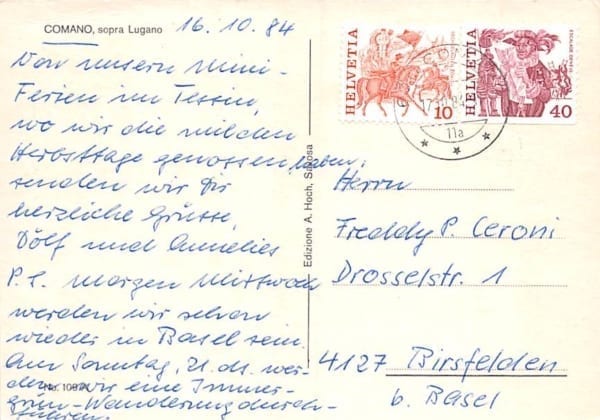 COMANO, sopra Lugano
16.10.84
Von unsern Mini-
Ferien im Tessin,
wo wir die milden
Herbsttage genossen haben,
senden wir Dir
herzliche Grüsse,
Dölf und Annelies
P.S. Morgen Mittwoch
werden wir schon
wieder in Basel sein.
Am Sonntag, 21. ds. wer-
den wir eine Immer-
grün-Wanderung durch-
führen.
Edizione A. Hoch, Savosa
HELVETIA
10
HELVETIA
40
11a
Herrn
Freddy P. Ceroni
Drosselstr. 1
4127 Birsfelden
b. Basel